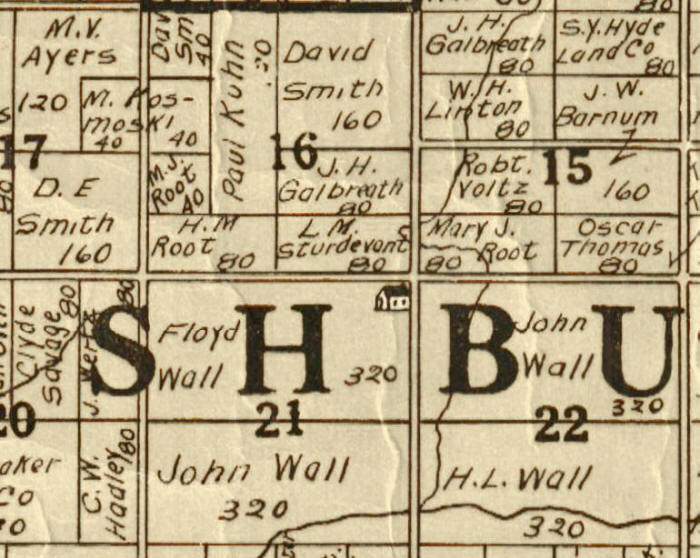 M.V.
Ayers
120
M. Kos-
moski
40
17
D. E
Smith
160
80
Dav
Sm
40
Paul Kuhn
David
Smith
160
16
40
M.J.
Root
40
J. H.
Galbreath
80
H.M
Root
80
L.M.
Sturdevant
80
J. H.
Galbreath
80
S.Y. Hyde
Land Co
80
W. H.
Linton
80
J. W.
Barnum
Robt.
Voltz
80
15
160
Mary J.
Root
80
Oscar
Thomas
80
Clyde
Savage
80
80
S H B U
Floyd
Wall
320
John
Wall
320
20
21
22
aker
Co
C. W.
Hadley
80
John Wall
320
H.L. Wall
320